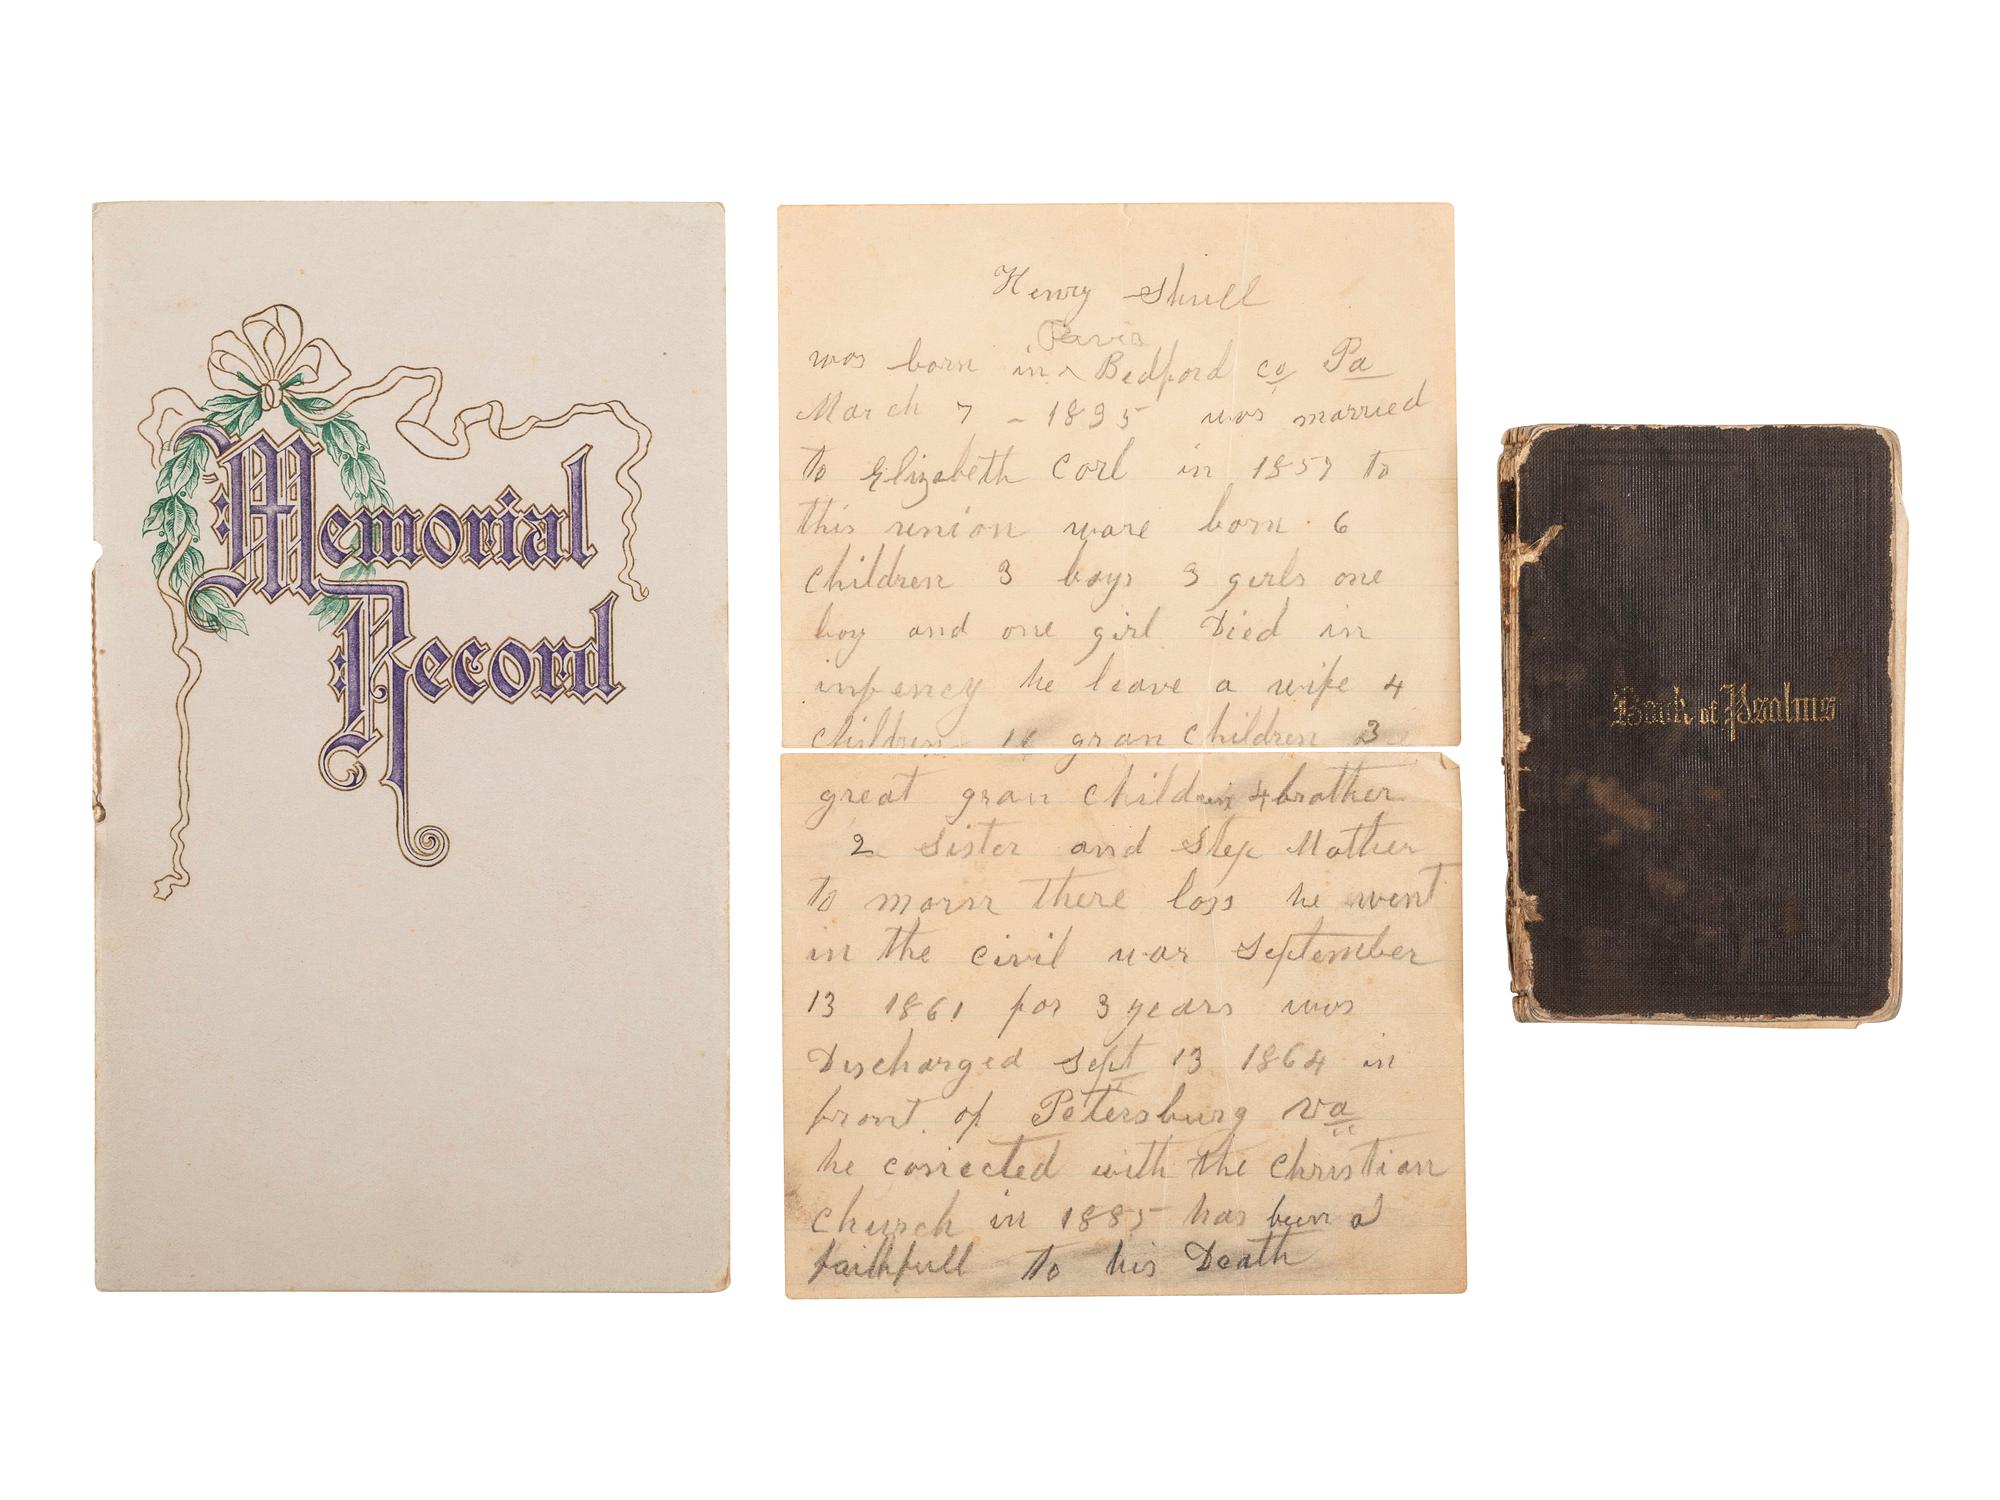 Memorial
Record
Henry Shull
was born in ^ Bedford co Pa
March 7 - 1835 was married
to Elizabeth Corl in 1857 to
this union ware born 6
children 3 boys 3 girls one
boy and one girl Died in
infency he leave a wife 4
children gran children 3
great gran children 4 brother
2 Sister and Step Mother
to morn there loss he went
in the civil war September
13 1861 for 3 years was
Discharged Sept 13 1864 in
front of Petersburg Va
he conected with the Christian
church in 1885 has been a
faithfull to his Death
Book of Psalms